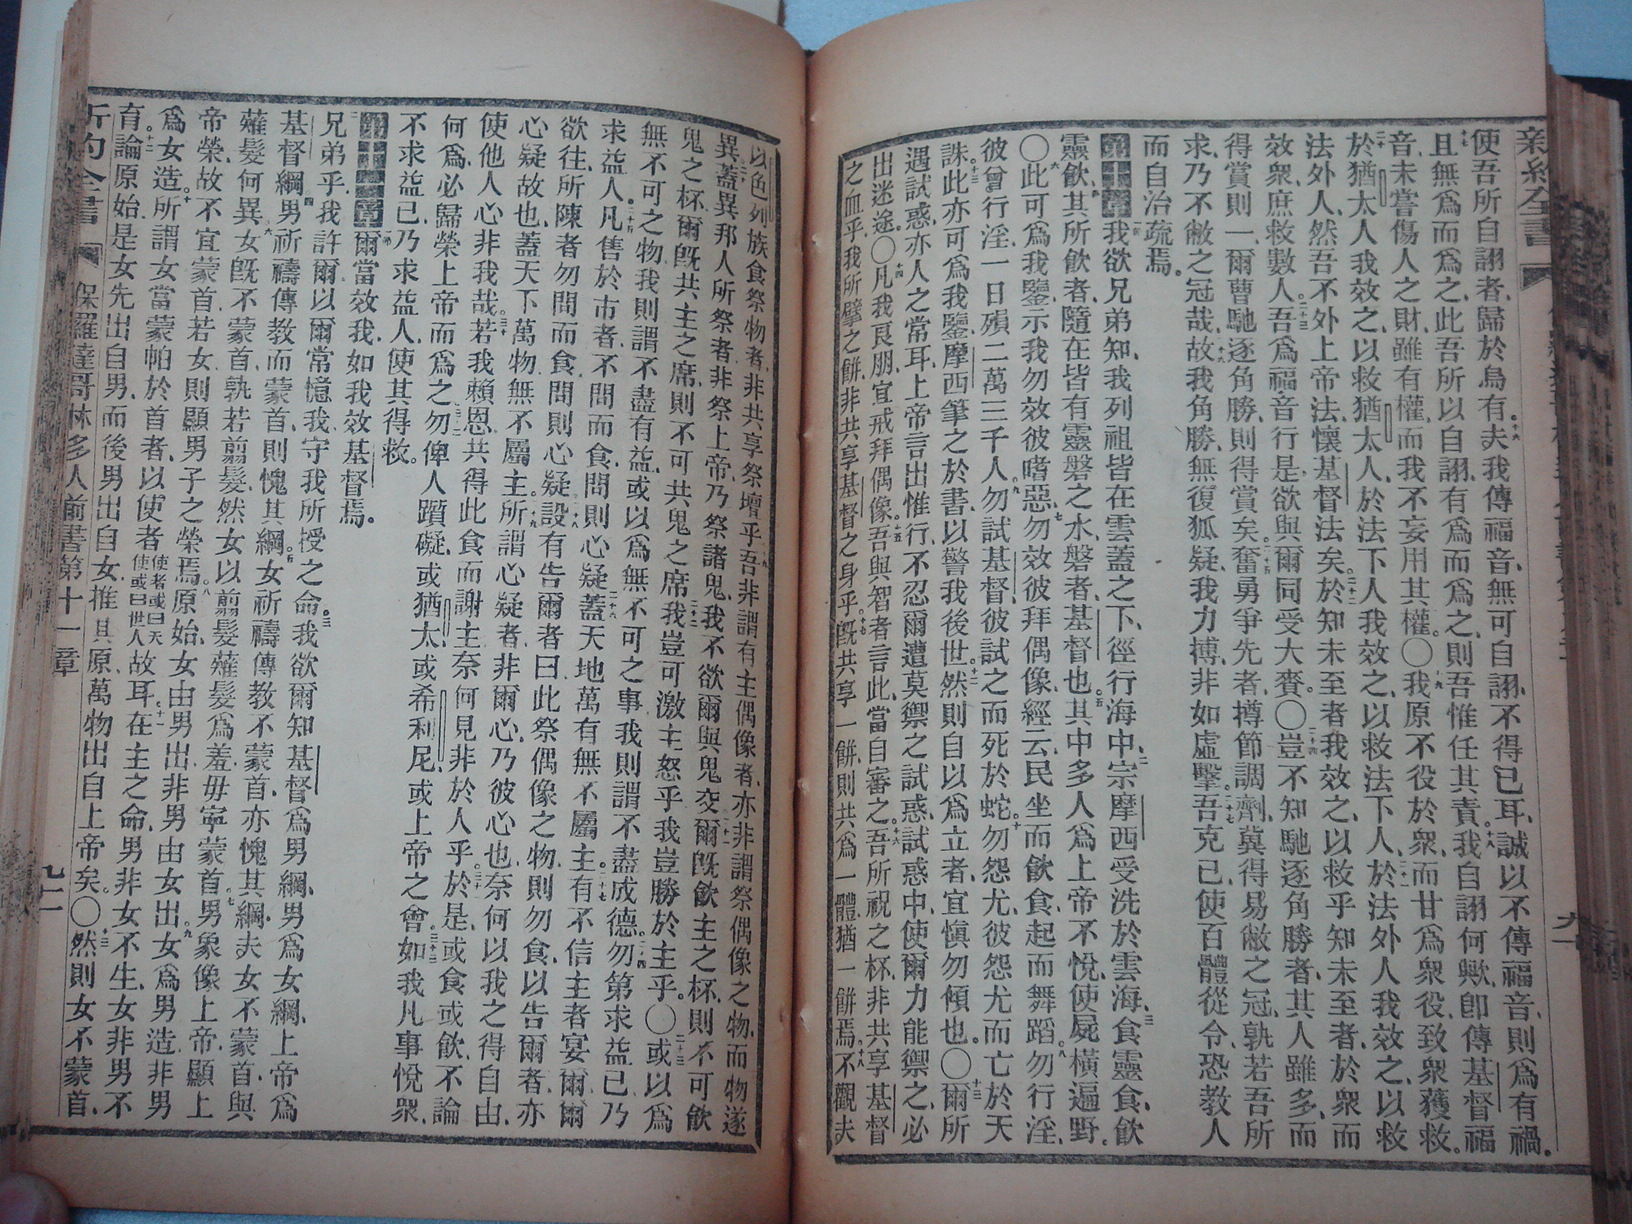 新約全書
使吾所自詡者、歸於烏有、夫我傳福音、無可自詡、不得已耳、誠以不傳福音、則爲有禍。
且無爲而爲之、此吾所以自詡、有爲而爲之、則吾惟任其責、我自詡何歟、卽傳基督福
音、未嘗傷人之財、雖有權、而我不妄用其權。〇我原不役於衆、而甘爲衆役、致衆獲救。
於猶太人、我效之、以救猶太人、於法下人、我效之、以救法下人、於法外人、我效之、以救
法外人、然吾不外上帝法、懷基督法矣、於知未至者、我效之、以救乎知未至者、於衆而
效衆、庶救數人、吾爲福音行是、欲與爾同受大賚。〇豈不知馳逐角勝者、其人雖多、而
得賞則一、爾曹馳逐角勝、則得賞矣、奮勇爭先者、撙節調劑、冀得易敝之冠、孰若吾所
求、乃不敝之冠哉、故我角勝、無復狐疑、我力搏、非如虛擊、吾克己、使百體從令、恐敎人
而自治疏焉。
第十章我欲兄弟知、我列祖皆在雲蓋之下、徑行海中、宗摩西受洗於雲海、食靈食、飲
靈飲、其所飲者、隨在皆有靈磐之水、磐者、基督也。其中多人、爲上帝不悅、使屍橫遍野。
〇此可爲我鑒、示我勿效彼嗜惡、勿效彼拜偶像、經云、民坐而飲食、起而舞蹈、勿行淫、
彼曾行淫、一日殞二萬三千人、勿試基督、彼試之而死於蛇、勿怨尤、彼怨尤而亡於天
誅、此亦可爲我鑒、摩西筆之於書、以警我後世、然則自以爲立者、宜愼勿傾也。〇爾所
遇試惑、亦人之常耳、上帝言出惟行、不忍爾遭莫禦之試惑、試惑中、使爾力能禦之、必
出迷途。〇凡我良朋、宜戒拜偶像、吾與智者言此、當自審之、吾所祝之杯、非共享基督
之血乎、我所擘之餅、非共享基督之身乎、旣共享一餅、則共爲一體、猶一餅焉、不觀夫
以色列族、食祭物者、非共享祭壇乎、吾非謂有主偶像者、亦非謂祭偶像之物、而物遂
異、蓋異邦人所祭者、非祭上帝、乃祭諸鬼、我不欲爾與鬼交、爾旣飲主之杯、則不可飲
鬼之杯、爾旣共主之席、則不可共鬼之席、我豈可激主怒乎、我豈勝於主乎。〇或以爲
無不可之物、我則謂不盡有益、或以爲無不可之事、我則謂不盡成德、勿第求益己、乃
求益人、凡售於市者、不問而食、問則心疑、蓋天地萬有、無不屬主、有不信主者宴爾、爾
欲往、所陳者、勿問而食、問則心疑、設有告爾者曰、此祭偶像之物、則勿食、以告爾者、亦
心疑故也、蓋天下萬物、無不屬主、所謂心疑者、非爾心、乃彼心也、奈何以我之得自由、
使他人心非我哉、若我賴恩、共得此食而謝主、奈何見非於人乎、於是、或食、或飲、不論
何爲、必歸榮上帝而爲之、勿俾人躓礙、或猶太、或希利尼、或上帝之會、如我凡事悅衆、
不求益己、乃求益人、使其得救。
第十一章爾當效我、如我效基督焉。
兄弟乎、我許爾、以爾常憶我、守我所授之命、我欲爾知基督爲男綱、男爲女綱、上帝爲
基督綱、男祈禱傳敎而蒙首、則愧其綱、女祈禱傳敎不蒙首、亦愧其綱、夫女不蒙首、與
薙髮何異、女旣不蒙首、孰若剪髮、然女以剪髮薙髮爲羞、毋寧蒙首、男象像上帝、顯上
帝榮、故不宜蒙首、若女、則顯男子之榮焉、原始、女由男出、非男由女出、女爲男造、非男
爲女造、所謂女當蒙帕於首者、以使者使者或曰天使或曰世人故耳、在主之命、男非女不生、女非男不
育、論原始、是女先出自男、而後男出自女、推其原、萬物出自上帝矣。〇然則女不蒙首、
新約全書 保羅達哥林多人前書第十一章 九二